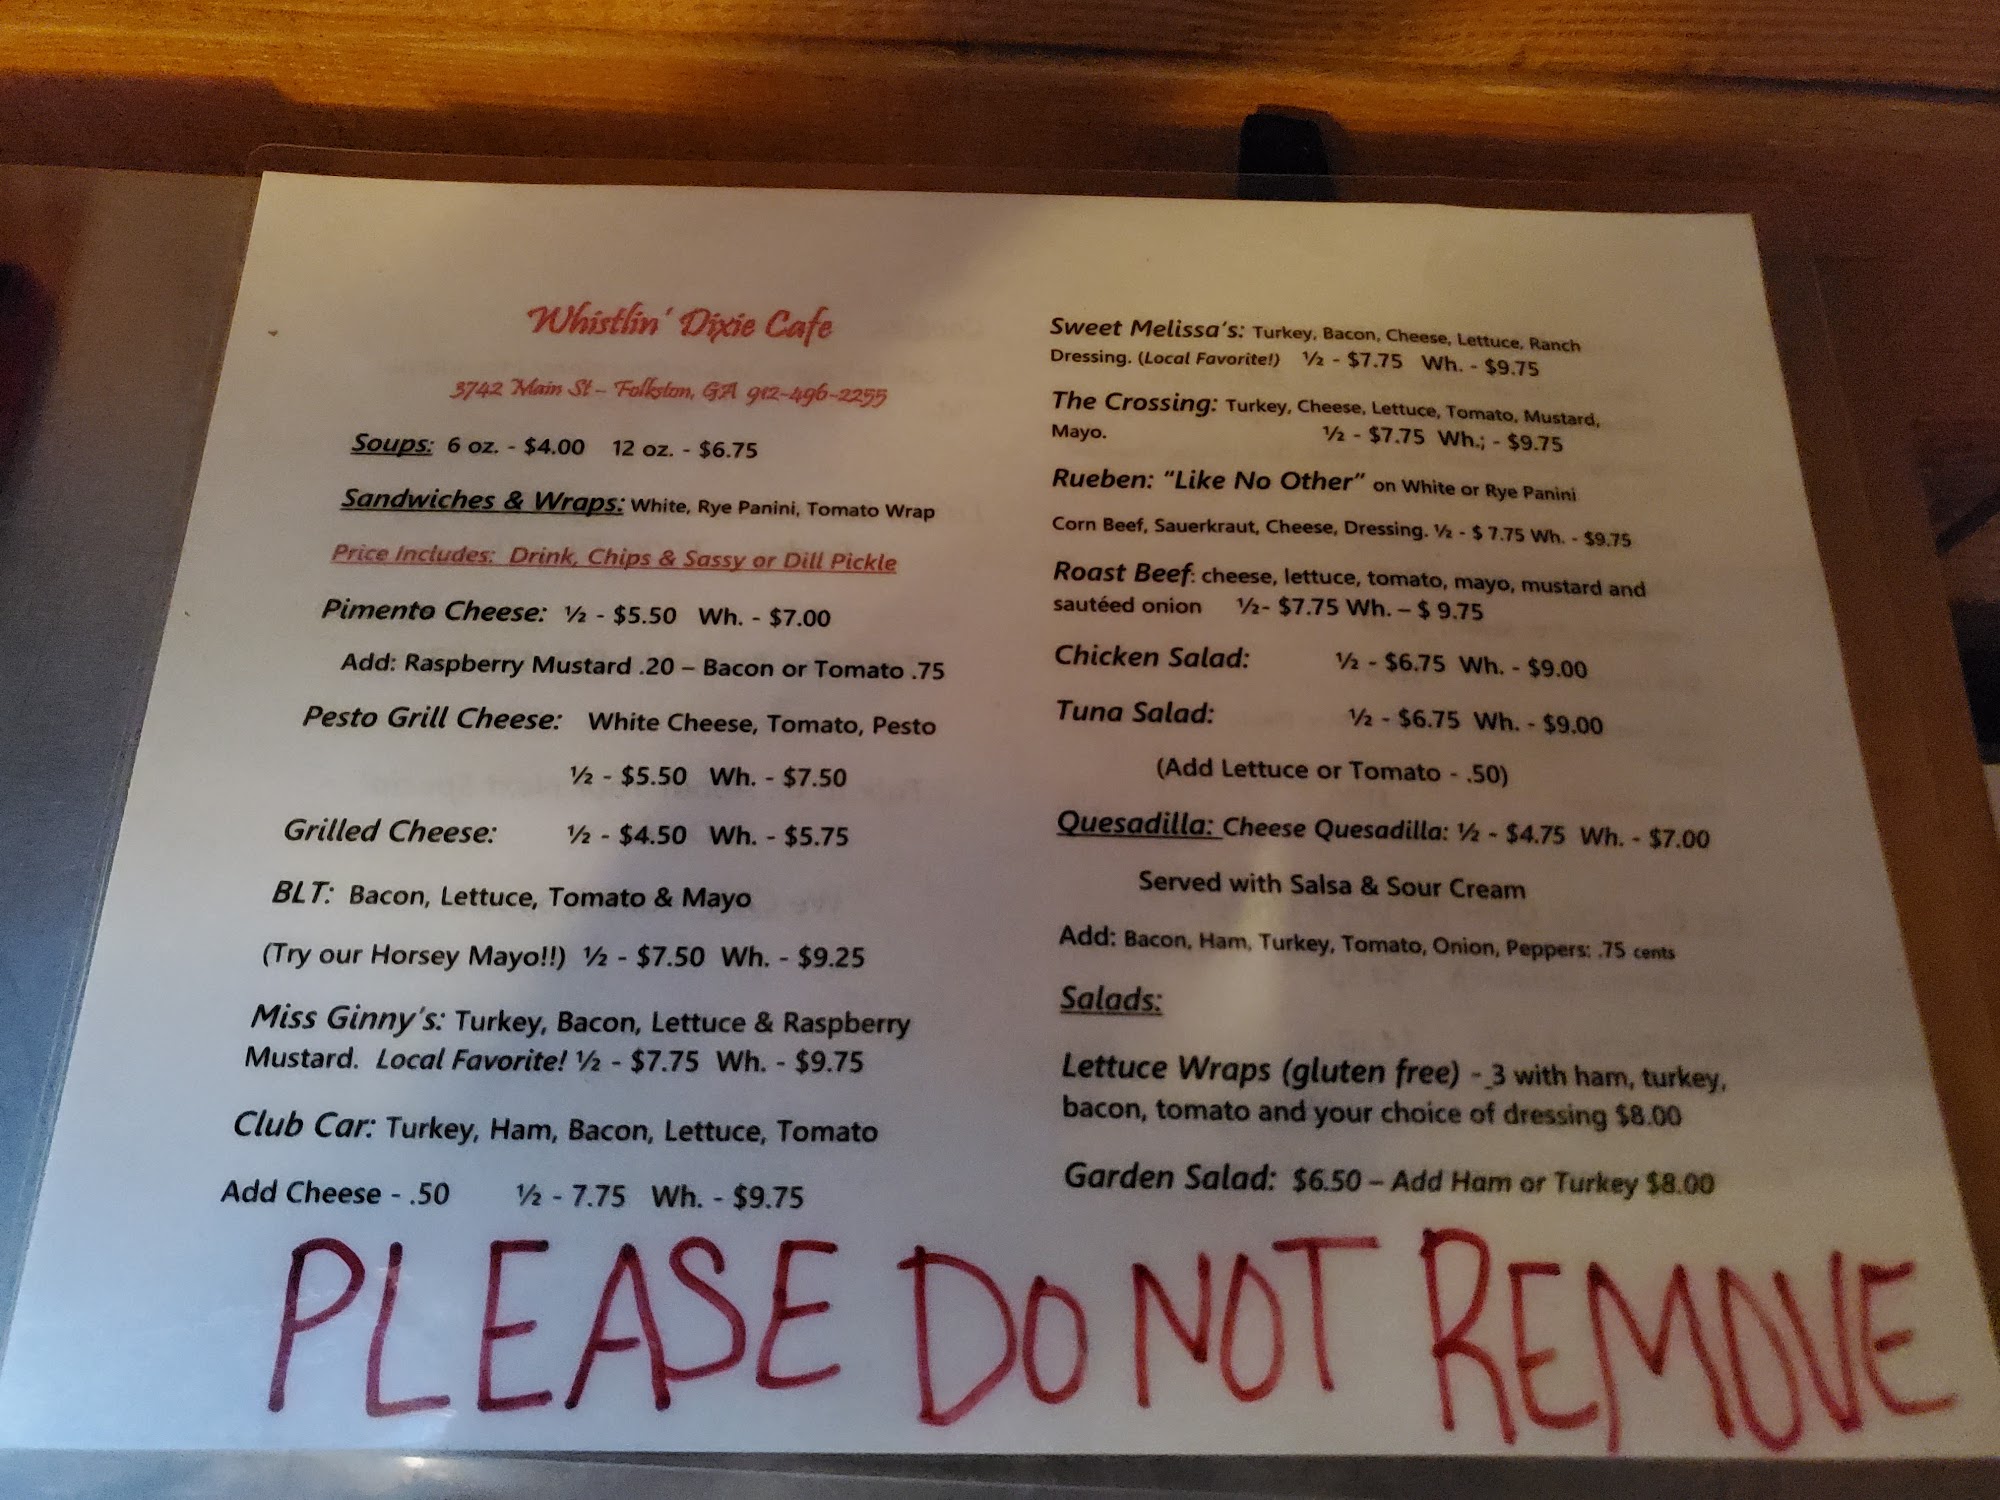 Whistlin' Dixie Cafe
3742 Main St – Folkston, GA 912-496-2255
Soups: 6 oz. - $4.00 12 oz. - $6.75
Sandwiches & Wraps: White, Rye Panini, Tomato Wrap
Price Includes: Drink, Chips & Sassy or Dill Pickle
Pimento Cheese: ½ - $5.50 Wh. - $7.00
Add: Raspberry Mustard .20 – Bacon or Tomato .75
Pesto Grill Cheese: White Cheese, Tomato, Pesto
½ - $5.50 Wh. - $7.50
Grilled Cheese: ½ - $4.50 Wh. - $5.75
BLT: Bacon, Lettuce, Tomato & Mayo
(Try our Horsey Mayo!!) ½ - $7.50 Wh. - $9.25
Miss Ginny's: Turkey, Bacon, Lettuce & Raspberry
Mustard. Local Favorite! ½ - $7.75 Wh. - $9.75
Club Car: Turkey, Ham, Bacon, Lettuce, Tomato
Add Cheese - .50 ½ - 7.75 Wh. - $9.75
Sweet Melissa's: Turkey, Bacon, Cheese, Lettuce, Ranch
Dressing. (Local Favorite!) ½ - $7.75 Wh. - $9.75
The Crossing: Turkey, Cheese, Lettuce, Tomato, Mustard,
Mayo. ½ - $7.75 Wh.; - $9.75
Rueben: "Like No Other" on White or Rye Panini
Corn Beef, Sauerkraut, Cheese, Dressing. ½ - $ 7.75 Wh. - $9.75
Roast Beef: cheese, lettuce, tomato, mayo, mustard and
sautéed onion ½- $7.75 Wh. – $ 9.75
Chicken Salad: ½ - $6.75 Wh. - $9.00
Tuna Salad: ½ - $6.75 Wh. - $9.00
(Add Lettuce or Tomato - .50)
Quesadilla: Cheese Quesadilla: ½ - $4.75 Wh. - $7.00
Served with Salsa & Sour Cream
Add: Bacon, Ham, Turkey, Tomato, Onion, Peppers: .75 cents
Salads:
Lettuce Wraps (gluten free) - 3 with ham, turkey,
bacon, tomato and your choice of dressing $8.00
Garden Salad: $6.50 – Add Ham or Turkey $8.00
PLEASE DO NOT REMOVE